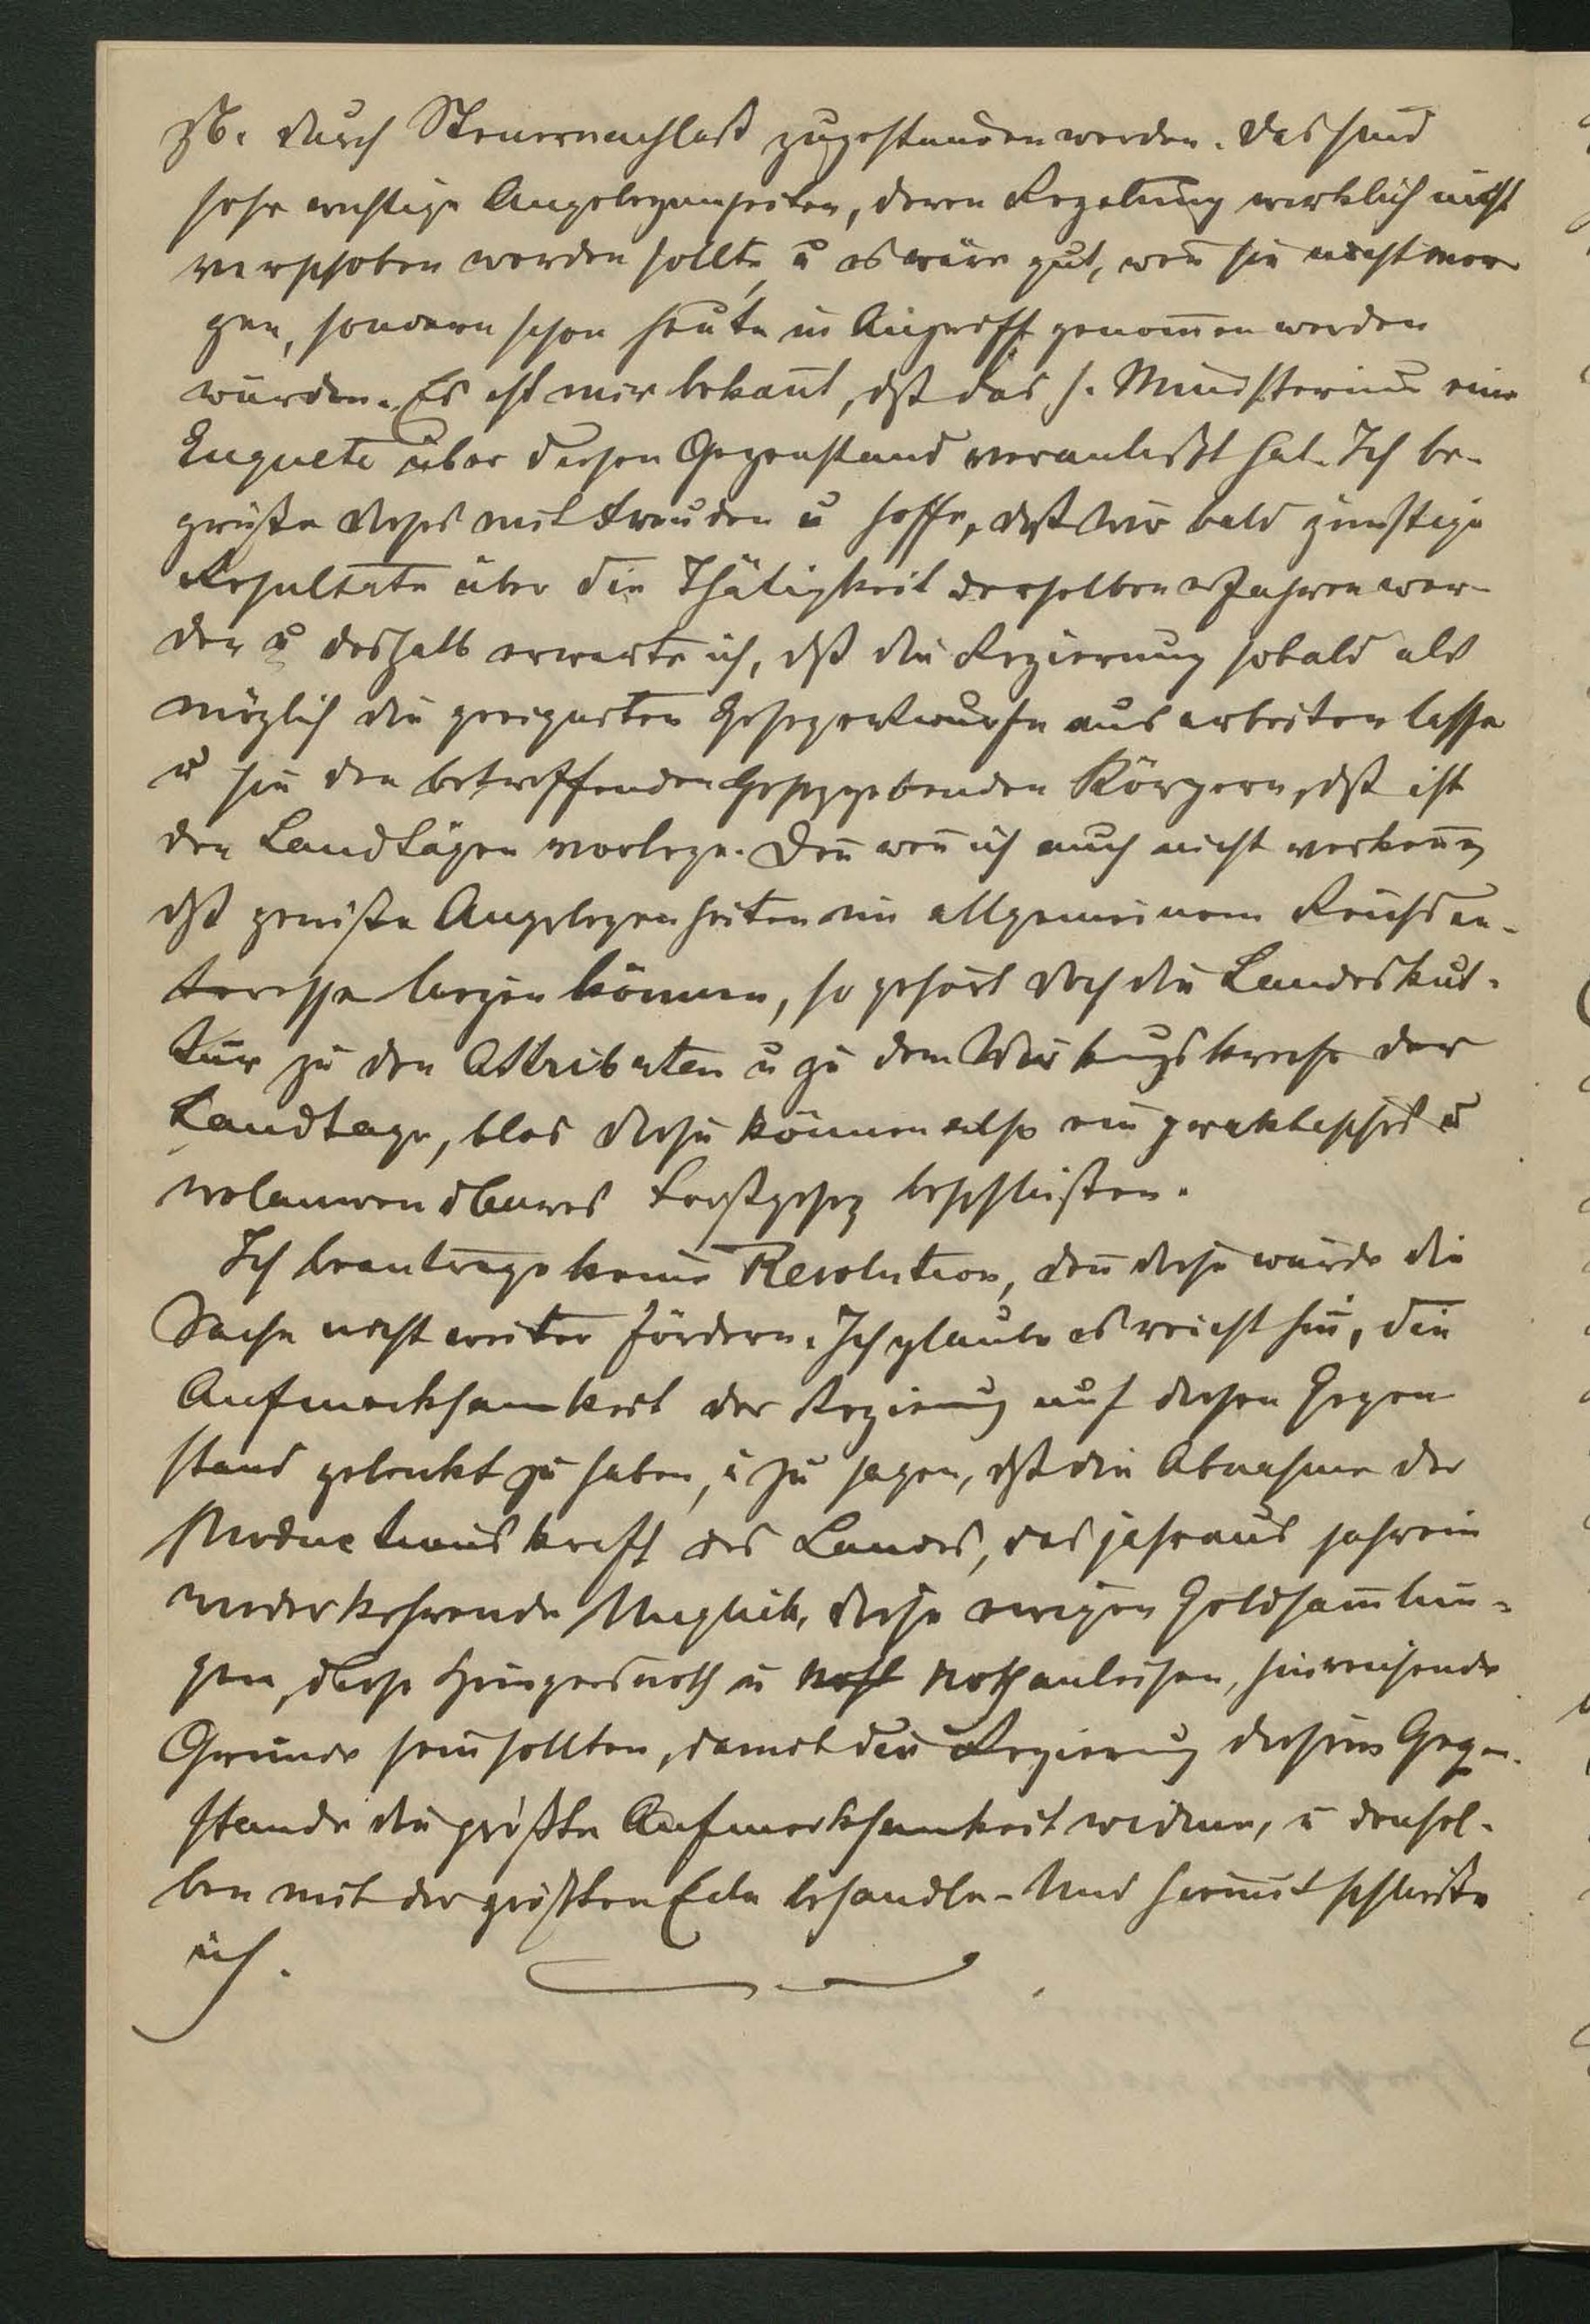 zb. durch Steuernachlaß zugestanden werden. Das sind
sehr wichtige Angelegenheiten, deren Regelung wirklich nicht
verschoben werden sollte, u es wäre gut, weñ sie nicht mor
gen, sondern schon heute in Angriff genom̄en werden
würden. Es ist mir bekañt, dß das h. Ministerium eine
Enquete über diesen Gegenstand veranlaßt hat. Ich be-
grüße dieses mit Freuden u hoffe, daß wir bald günstige
Resultate über die Thätigkeit derselben erfahren wer-
den u deshalb erwarte ich, dß die Regierung sobald als
möglich die geeigneten Gesezentwürfe ausarbeiten lasse
u sie den betreffenden Gesezgebenden Körpern, dß ist
den Landtägen vorlege. Deñ weñ ich auch nicht verkeñe,
dß gewiße Angelegenheiten im allgemeinem Reichsin-
teresse liegen können, so gehört doch die Landeskul-
tur zu den Attributen u zu dem Wirkungskreise der
Landtage, blos diese können also ein praktisches u
wolanwendbares Forstgesez beschließen.
Ich beantrage keine Resolution, deñ diese würde die
Sache nicht weiter fördern. Ich glaube es reicht hin, die
Aufmerksamkeit der Regierung auf diesen Gegen
stand gelenkt zu haben, u zu sagen, dß die Abnahme der
Productionskraft des Landes, das jahraus jahrein
wiederkehrende Unglück, diese ewigen Geldsam̄lun-
gen, diese Hungersnoth u Nothanleihen, hinreichende
Gründe sein sollten, damit die Regierung diesem Gegen-
stande die größte Aufmerksamkeit widme, u densel-
ben mit der größten Eile behandle. Und hiemit schließe
ich.